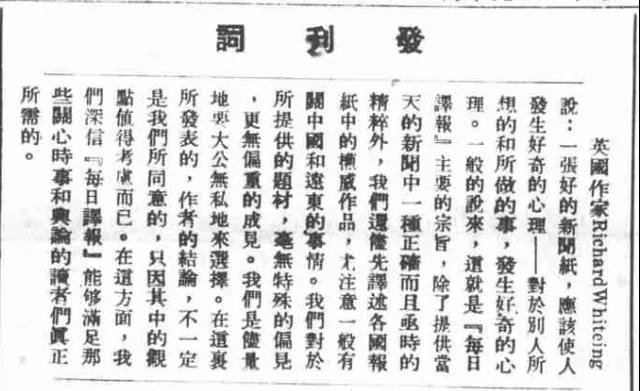 發刊詞
英國作家Richard Whiteing
說：一張好的新聞紙，應該使人
發生好奇的心理——對於別人所
想的和所做的事，發生好奇的心
理。一般的說來，這就是『每日
譯報』主要的宗旨，除了提供當
天的新聞中一種正確而且亟時的
精粹外，我們還儘先譯述各國報
紙中的權威作品，尤注意一般有
關中國和遠東的事情。我們對於
所提供的題材，毫無特殊的偏見
，更無偏重的成見。我們是儘量
地要大公無私地來選擇。在這裏
所發表的，作者的結論，不一定
是我們所同意的，只因其中的觀
點值得考慮而已。在這方面，我
們深信『每日譯報』能够滿足那
些關心時事和輿論的讀者們眞正
所需的。